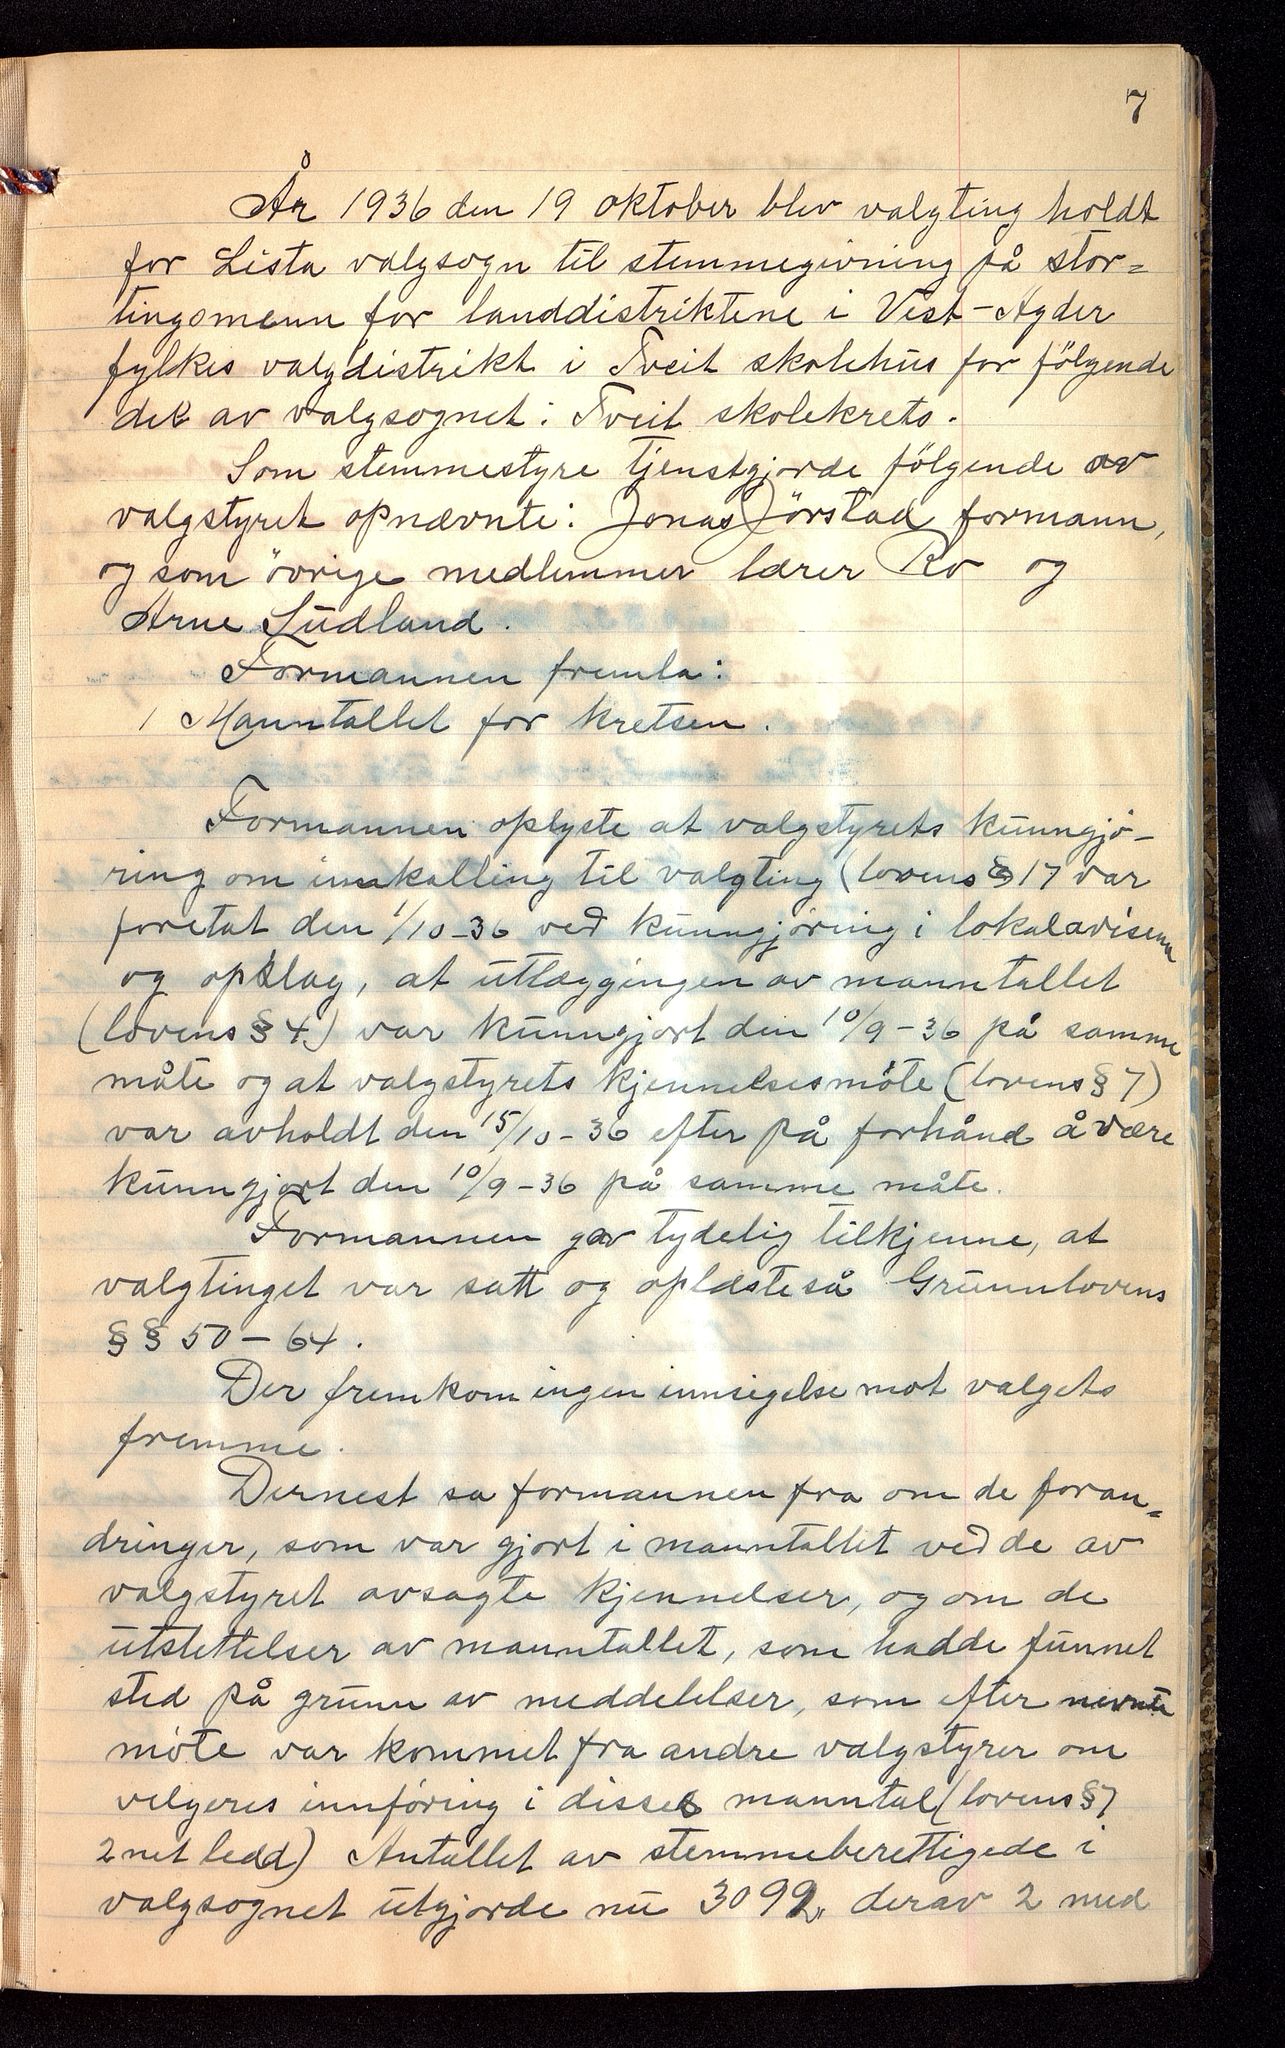 7
År 1936 den 19 oktober blev valgting holdt
for Lista valgsogn til stemmegivning på stor-
tingsmenn for landdistriktene i Vest-Agder
fylkes valgdistrikt i Tveit skolehus for følgende
del av valgsognet: Tveit skolekrets.
Som stemmestyre tjenstgjorde følgende av
valgstyret opnævnte: Jonas Jørstad formann,
og som øvrige medlemmer lærer Ro og
Arne Ludland.
Formannen fremla:
1 Manntallet for kretsen.
Formannen oplyste at valgstyrets kunngjø-
ring om innkalling til valgting (lovens § 17 var
foretat den 1/10-36 ved kunngjøring i lokalavisene
og opslag, at utlæggingen av manntallet
(lovens § 4) var kunngjort den 10/9-36 på samme
måte og at valgstyrets kjennelsesmøte (lovens § 7)
var avholdt den 15/10-36 efter på forhånd å være
kunngjort den 10/9-36 på samme måte.
Formannen gav tydelig tilkjenne, at
valgtinget var satt og oplæste så Grunnlovens
§ § 50-64.
Der fremkom ingen innsigelse mot valgets
fremme.
Dernest sa formannen fra om de foran-
dringer, som var gjort i manntallet ved de av
valgstyret avsagte kjennelser, og om de
utslettelser av manntallet, som hadde funnet
sted på grunn av meddelelser, som efter nevnte
møte var kommet fra andre valgstyrer om
velgeres innføring i disses manntal (lovens § 7
2net ledd) Antallet av stemmeberettigede i
valgsognet utgjorde nu 3092, derav 2 med